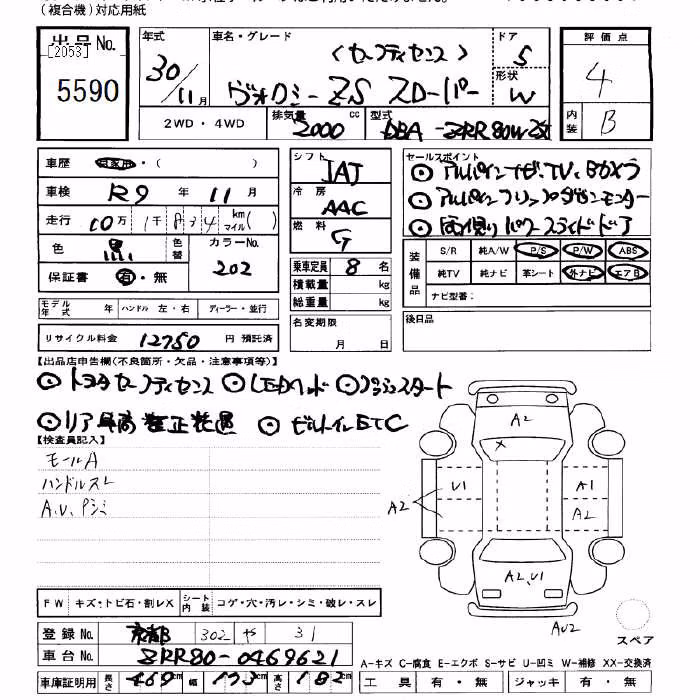 (複合機)対応用紙
出品No. [2053] 5590
年式 30/11月
車名・グレード (セーフティセンス) ヴォクシー ZS
ドア 5
形状 W
評価点 4
内装 B
2WD・4WD 排気量 2000 cc 型式 DBA-ZRR80W
車歴 自家用・( )
車検 R9 年 11 月
走行 10万1千 km マイル( )
色 黒 色替 カラーNo. 202
保証書 有・無
モデル年式 年 ハンドル 左・右 ディーラー・並行
リサイクル料金 12750 円 預託済
シフト IAT
冷房 AAC
燃料 G
乗車定員 8 名
積載量 kg
総重量 kg
名変期限 月 日
セールスポイント
アルパインナビ、TV、Bカメラ
アルパインフリップダウンモニター
両側パワースライドドア
装備品 S/R 純A/W P/S P/W ABS
純TV 純ナビ 革シート 外ナビ エアB
ナビ型番:
後日品
【出品店申告欄(不良箇所・欠品・注意事項等)】
トヨタセーフティセンス LEDヘッド プッシュスタート
リア車高調正装置 ビルトインETC
【検査員記入】
モールA
ハンドルスレ
A,U,Pシミ
A2
U1
A1
A2
A2
A2,U1
AU2
スペア
FW キズ・トビ石・割レX シート内装 コゲ・穴・汚レ・シミ・破レ・スレ
登録No. 京都 302 や 31
車台No. ZRR80-0469621
A-キズ C-腐食 E-エクボ S-サビ U-凹ミ W-補修 XX-交換済
車庫証明用 長さ 469cm 幅 173cm 高さ 182cm
工具 有・無 ジャッキ 有・無